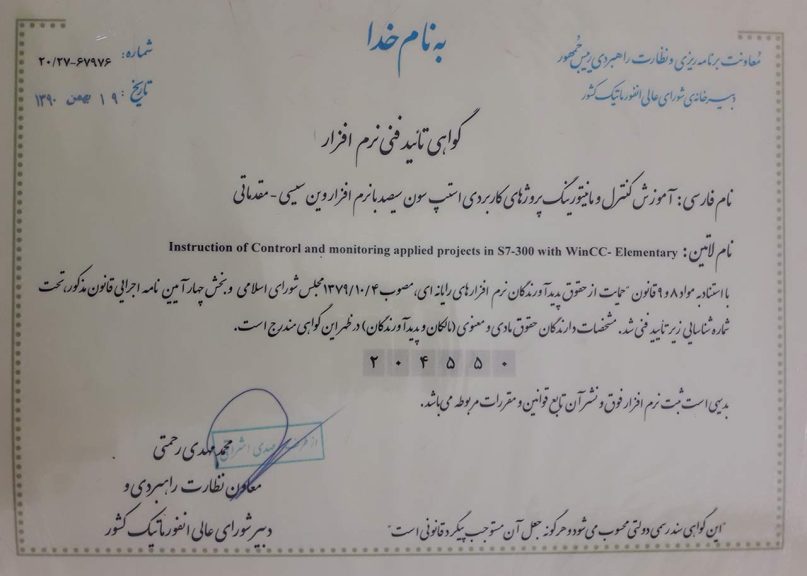 به نام خدا
معاونت برنامه‌ریزی و نظارت راهبردی رییس‌جمهور
دبیرخانه‌ی شورای عالی انفورماتیک کشور
شماره: ۲۰/۲۷-۶۷۹۷۶
تاریخ: ۱۹ بهمن ۱۳۹۰
گواهی تأیید فنی نرم افزار
نام فارسی: آموزش کنترل و مانیتورینگ پروژهای کاربردی استپ سون سیصد با نرم افزار وین سیسی - مقدماتی
نام لاتین: Instruction of Controrl and monitoring applied projects in S7-300 with WinCC- Elementary
با استناد به مواد ۸ و ۹ قانون حمایت از حقوق پدیدآورندگان نرم افزارهای رایانه ای، مصوب ۱۳۷۹/۱۰/۴ مجلس شورای اسلامی و بخش چهار آیین نامه اجرایی قانون مذکور، تحت
شماره شناسایی زیر تأیید فنی شد. مشخصات دارندگان حقوق مادی و معنوی (مالکان و پدیدآورندگان) در ظهر این گواهی مندرج است.
۲۰۴۵۵۰
بدیهی است ثبت نرم افزار فوق و نشر آن تابع قوانین و مقررات مربوطه می‌باشد.
از طرف مهدی
محمد مهدی رحمتی
معاون نظارت راهبردی و
دبیر شورای عالی انفورماتیک کشور
"این گواهی سند رسمی دولتی محسوب می‌شود و هرگونه جعل آن مستوجب پیگرد قانونی است"